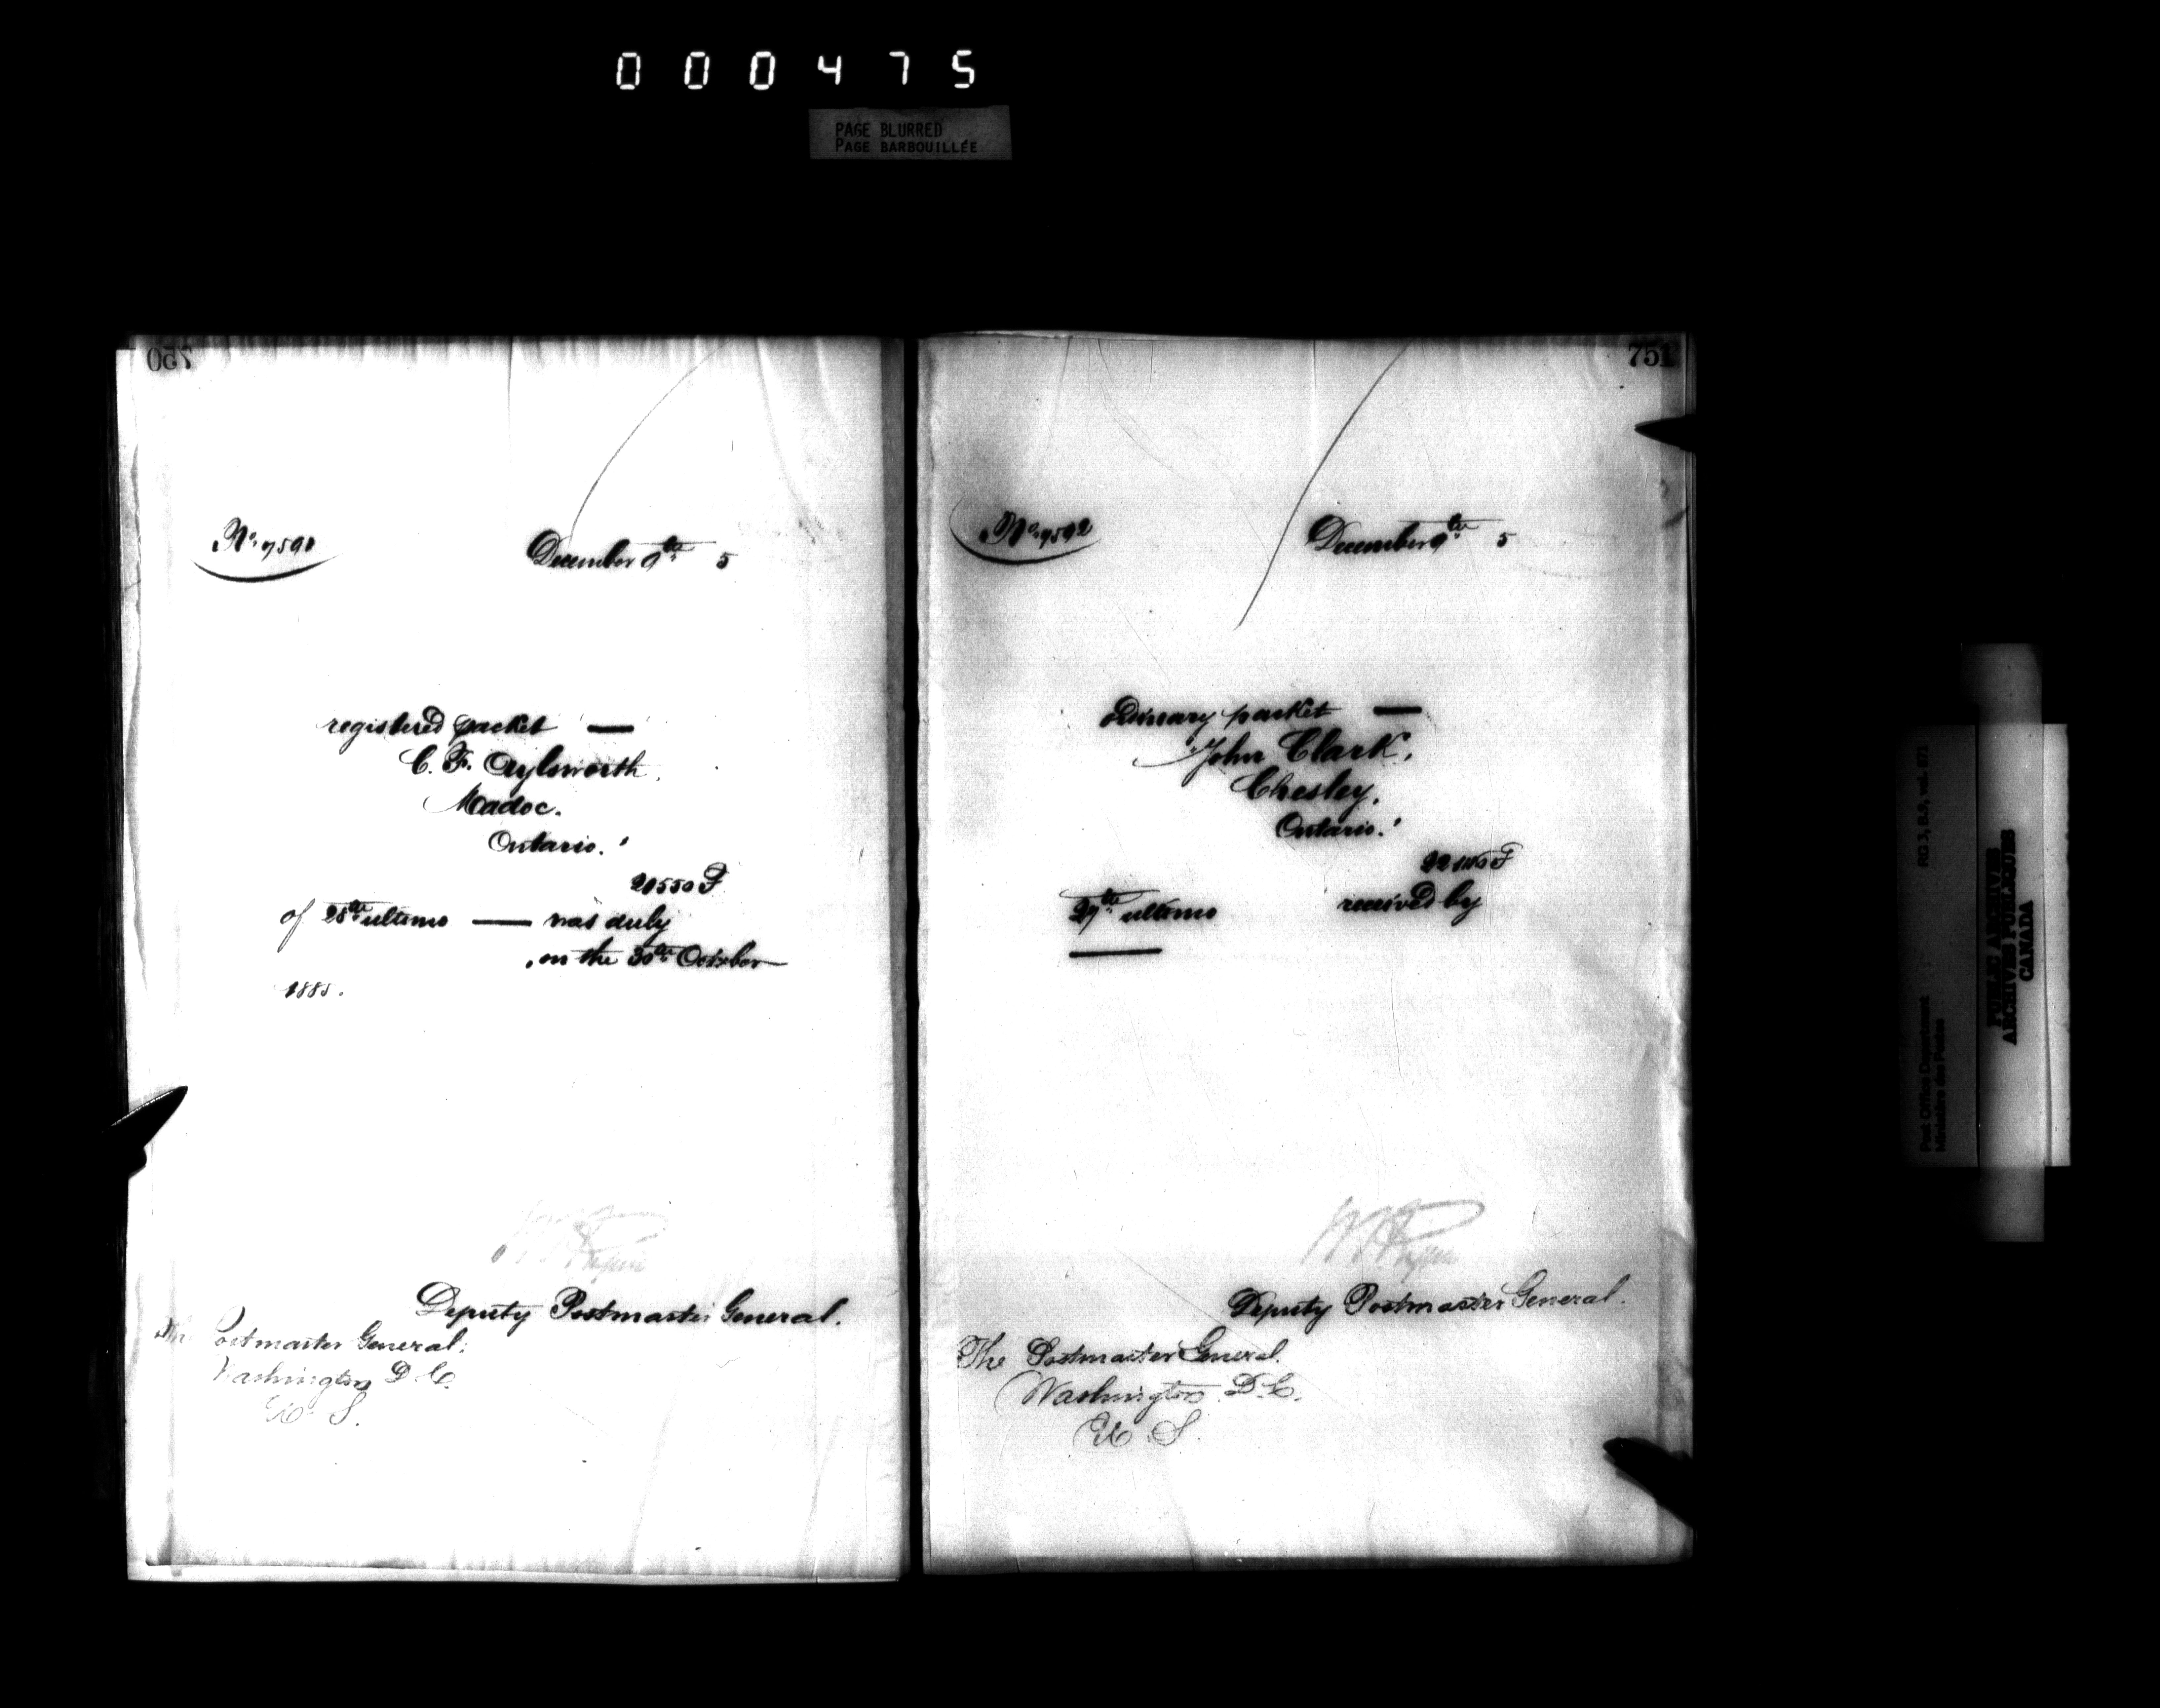 000475
PAGE BLURRED
PAGE BARBOUILLÉE
750
No. 7591
December 9th 5
registered packet —
C. F. Aylsworth,
Madoc.
Ontario.
21550 F
of 25th ultimo — was duly
, on the 30th October
1885.
Deputy Postmaster General.
The Postmaster General.
Washington D.C.
U. S.
751
No. 7592
December 9th 5
ordinary packet —
John Clark,
Chesley,
Ontario.
27th ultimo received by
Deputy Postmaster General.
The Postmaster General.
Washington D.C.
U. S.
RG 3, B.9, vol. 871
Post Office Department
Ministère des Postes
PUBLIC ARCHIVES
ARCHIVES PUBLIQUES
CANADA